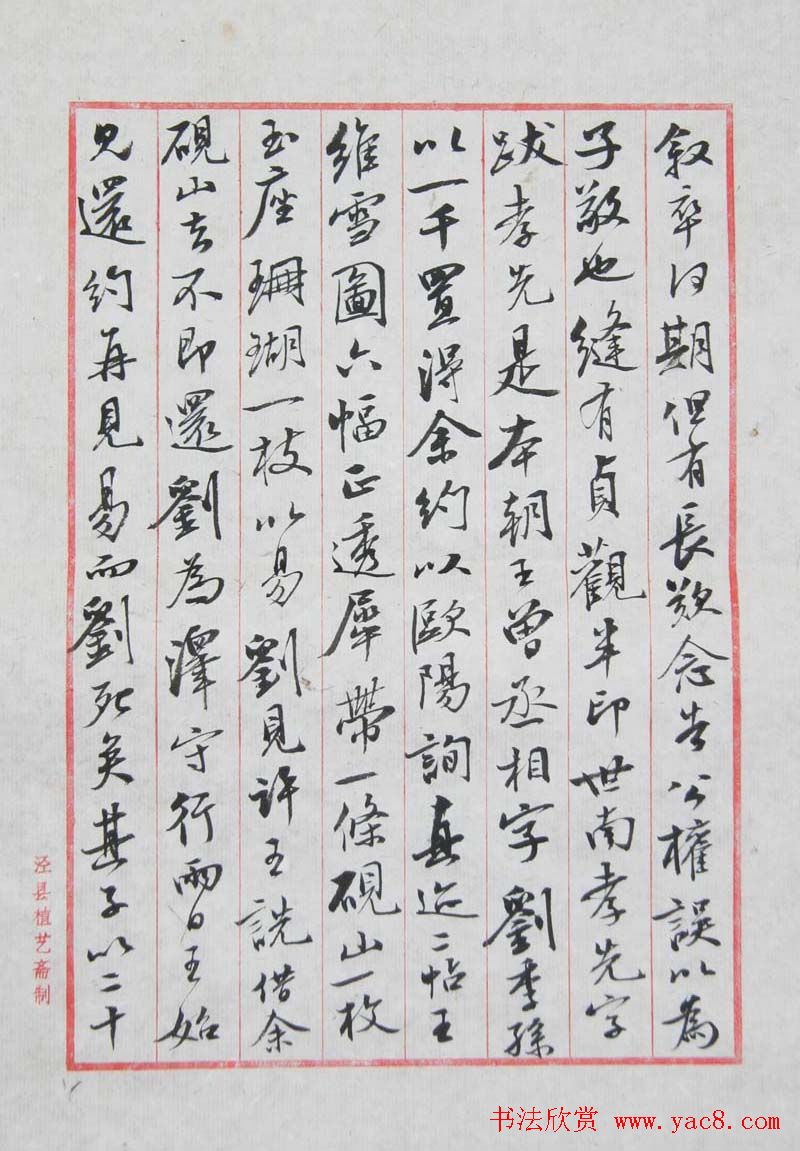 敘卒何期但有長歎念告公權誤以為
子敬也縫有貞觀半印世南孝先字
跋孝先是本朝王曾丞相字劉季孫
以一千置得余約以歐陽詢真迹二帖王
維雪圖六幅正透犀帶一條硯山一枚
玉座珊瑚一枝以易劉見許王詵借余
硯山去不即還劉為澤守行兩日王始
見還約再見易而劉死矣其子以二十
泾县植艺斋制
书法欣赏 www.yac8.com